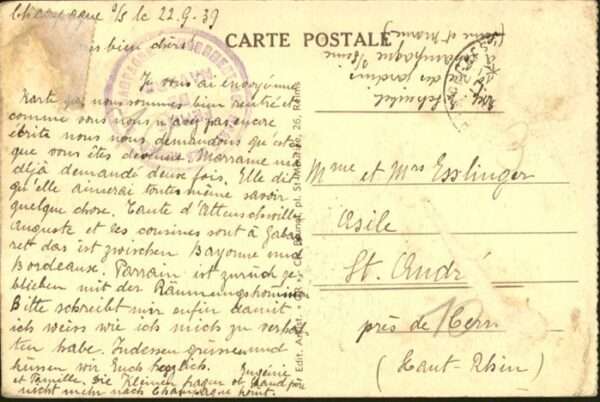 Champagne s/s le 22.9.39
bien chers
Je vous ai envoyé une
Karte que nous sommes bien rentré et
comme vous nous n'avez pas encore
écrite nous nous demandons qu'est ce
que vous êtes devenue. Marraine m'a
déjà demandé deux fois. Elle dit
qu'elle aimerai toutes même savoir
quelque chose. Tante d'
Auguste et les cousines sont à Gaba
rett das ist zwischen Bayonne und
Bordeaux. Parrain ist zurück ge
blieben mit der Räumungskommission
Bitte schreibt mir enfin damit
ich weiss wie ich mich zu verhal
ten habe. Indessen grüssen und
küssen wir Euch herzlich. Eugénie
et Famille. Die Kleinen fragen ob
nicht mehr nach Champagne kommt.
CARTE POSTALE
Edit. Artist. "OR" Ch. Brunel, pl. St-Maurice, 26, Reims
rue des jardins
Champagne s/Seine
(Seine et Marne)
Mme et Mrs Esslinger
Asile
St. André
près de Cern
(Haut-Rhin)